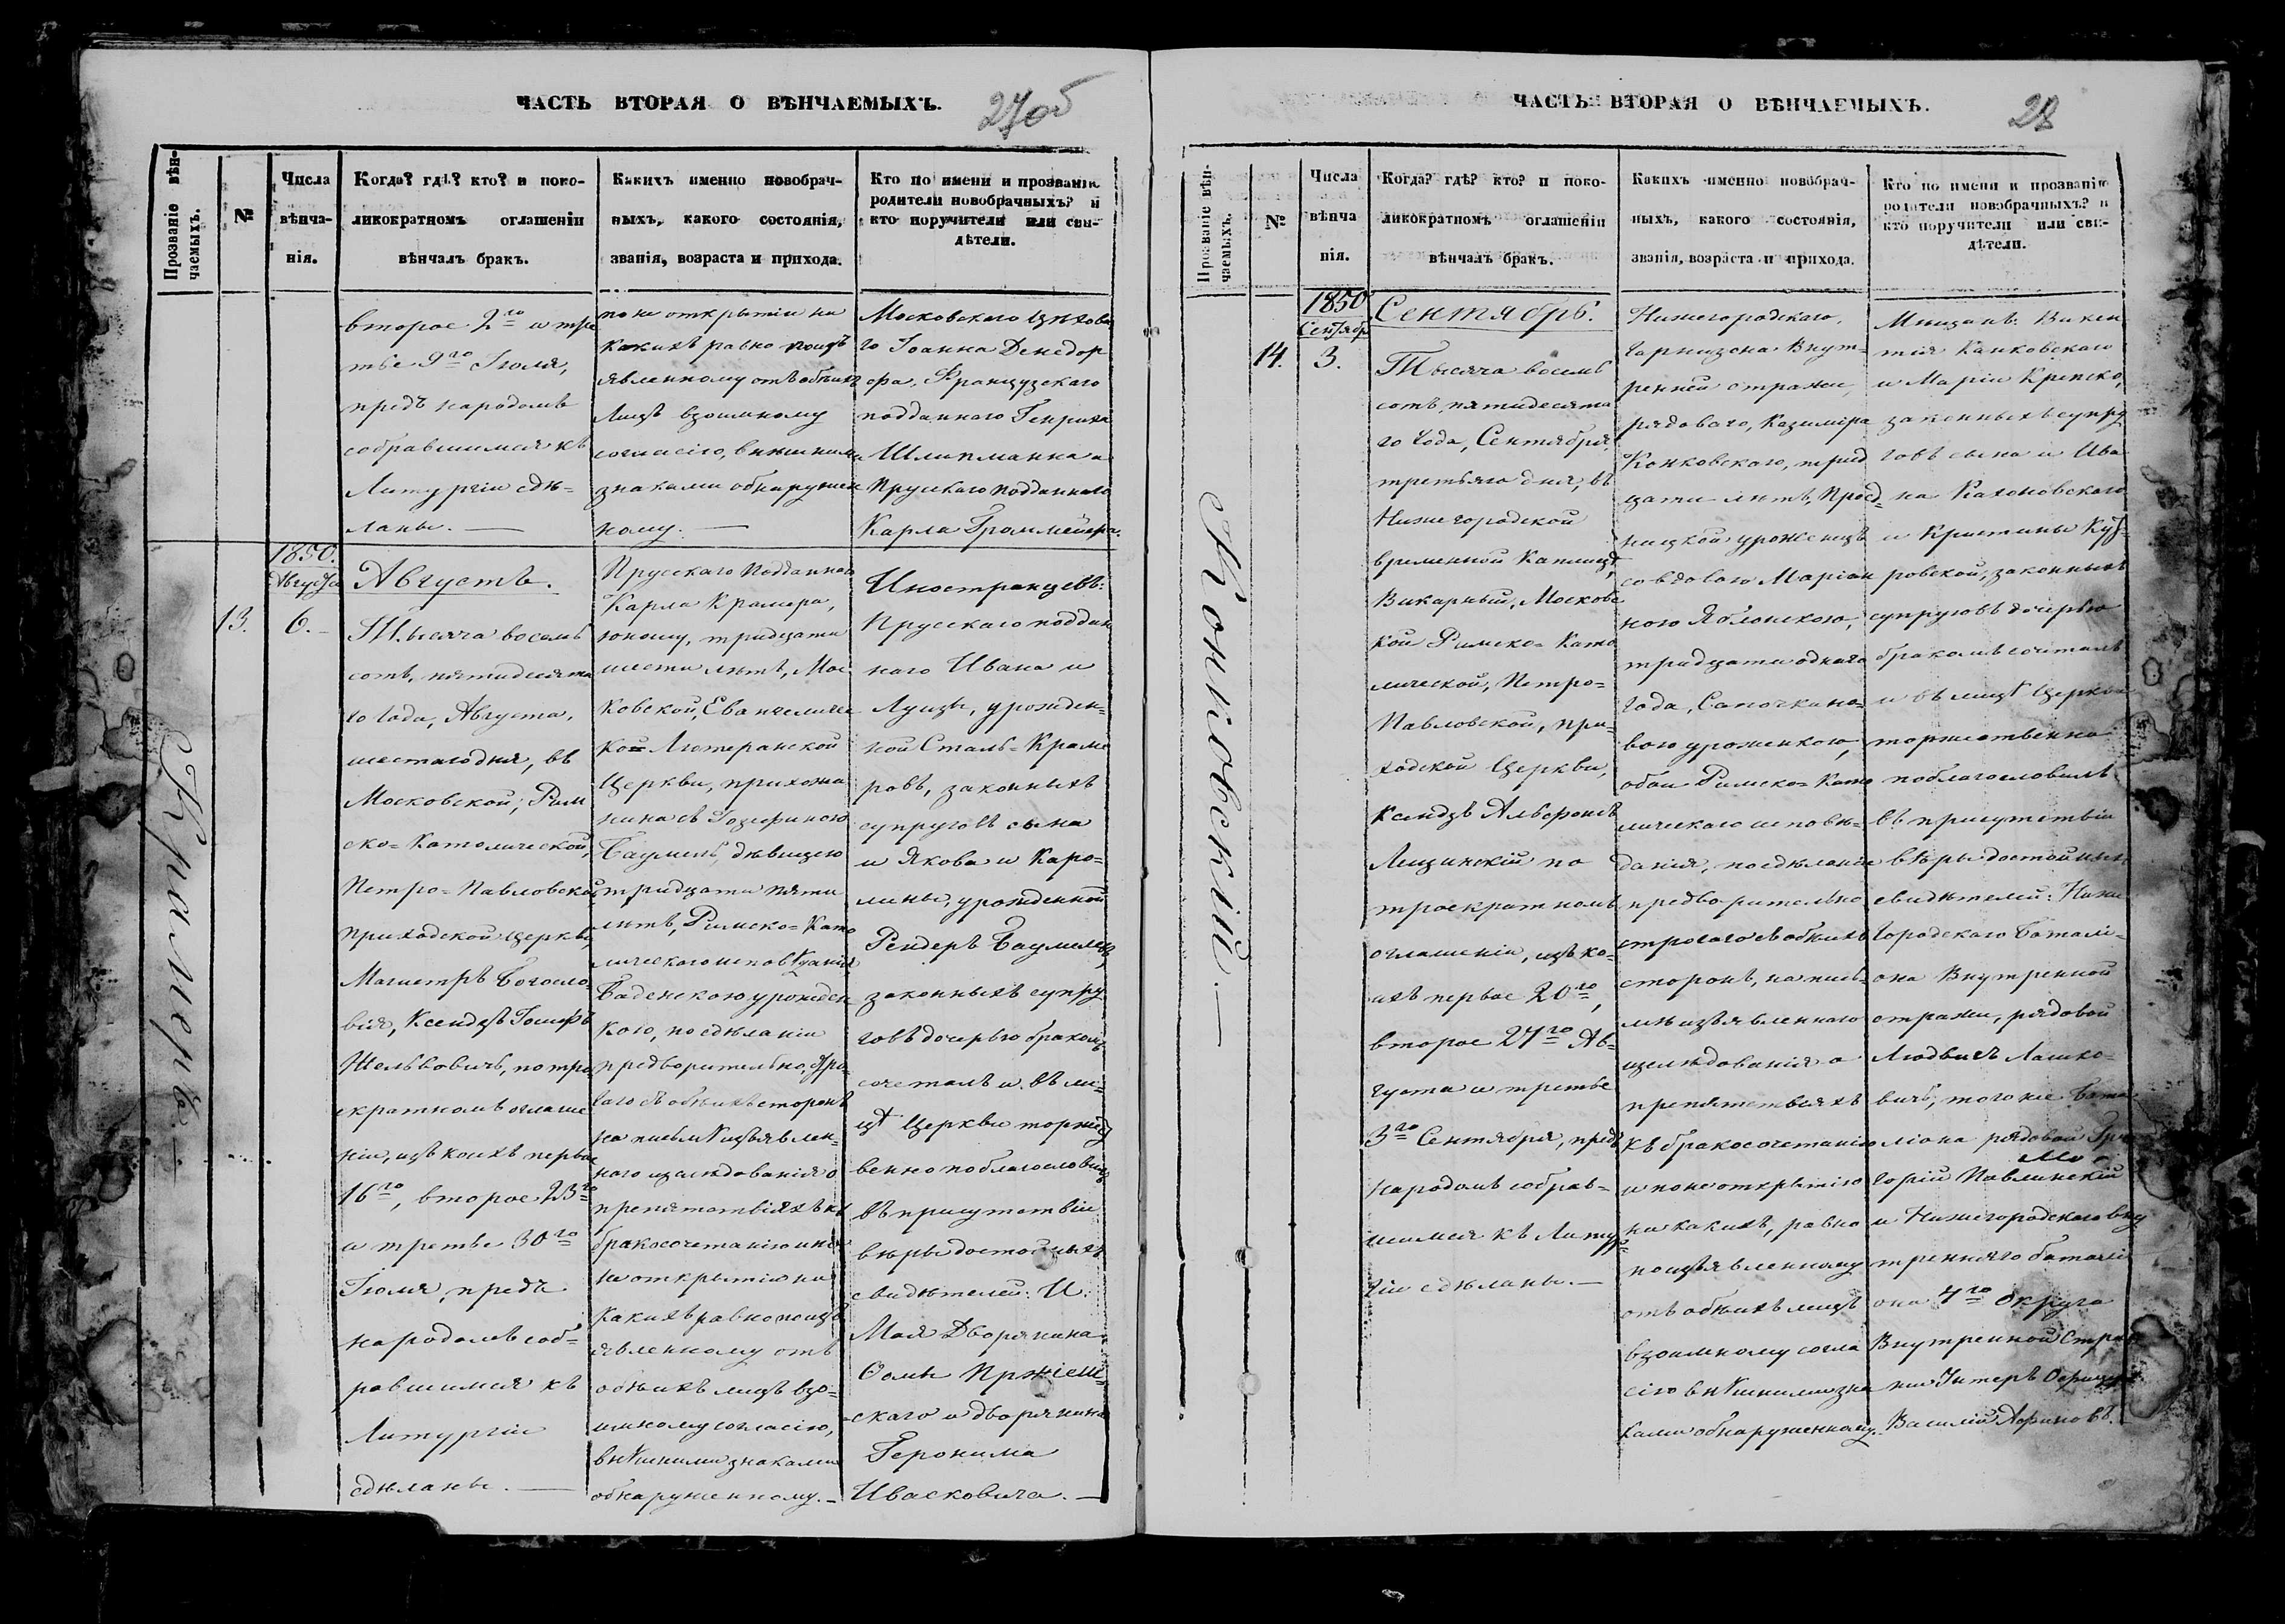 ЧАСТЬ ВТОРАЯ О ВѢНЧАЕМЫХЪ.
27об
Прозваніе вѣн-
чаемыхъ.
№
Числа
вѣнча-
нія.
Когда? гдѣ? кто? и поко-
ликократномъ оглашеніи
вѣнчалъ бракъ.
Какихъ именно новобрач-
ныхъ, какого состоянія,
званія, возраста и прихода.
Кто по имени и прозванію
родители новобрачныхъ? и
кто поручители или сви-
дѣтели.
второе 2го и тре
тье 9го Іюля,
предъ народомъ
собравшимся къ
Литургіи сдѣ=
ланы.
по не открытіи ни
какихъ равно поизъ
явленному отъ обѣихъ
лицъ взоимному
согласію, внѣшними
знаками обнаружен
ному.
Московскаго Цѣхова
го Іоанна Денедор
фа, Французскаго
подданнаго Генриха
Шлипманна и
Прускаго подданнаго
Карла Граммейера.
Крамеръ.
13.
1850.
Августа
6.
Августъ.
Тысяча восемь
сотъ, пятидесята
го года, Августа,
шестаго дня, въ
Московской, Рим
ско=Католической,
Петро=Павловской
приходской Церкви,
Магистръ Богосло
вія, Ксендзъ Іосифъ
Шельвовичъ, по тро
екратномъ оглаше
ніи, изъ коихъ первое
16го, второе 23го
и третье 30го
Іюля, предъ
народомъ соб=
равшимся къ
Литургіи
сдѣланы.
Прусскаго Подданнаго
Карла Крамера,
юношу, тридцати
шести лѣтъ, Мос
ковской, Евангеличе
кой Лютеранской
Церкви, прихожа
нина съ Іозефиною
Баумель, дѣвицею
тридцати пяти
лѣтъ, Римско=Като
лическаго исповѣданія
Баденскою урожден
кою, по сдѣланіи
предворительно, стро
гаго съ обѣихъ сторонъ
на письмѣ изъявлен=
наго изслѣдованія о
препятствіяхъ къ
бракосочетанію и по
не открытіи ни
какихъ равно поизъ
явленному отъ
обѣихъ лицъ взо=
имному согласію,
внѣшними знаками
обнаруженному.
Иностранцевъ:
Прусскаго поддан
наго Ивана и
Луизы, урожден=
ной Сталь=Краме
ровъ, законныхъ
супруговъ сына
и Якова и Каро=
лины, урожденной
Рендеръ Баумелевъ,
законныхъ супру
говъ дочерью бракомъ
сочеталъ и въ ли=
цѣ Церкви торжест
венно поблагословилъ
въ присутствіи
вѣры достойныхъ
свидѣтелей: И.
Мая Дворянина
Ѳомы Пржіем=
скаго и дворянина
Геронима
Ивасковича.
ЧАСТЬ ВТОРАЯ О ВѢНЧАЕМЫХЪ.
28
Прозваніе вѣн-
чаемыхъ.
№
Числа
вѣнча
нія.
Когда? гдѣ? кто? и поко-
ликократномъ оглашеніи
вѣнчалъ бракъ.
Какихъ именно новобрач-
ныхъ, какого состоянія,
званія, возраста и прихода.
Кто по имени и прозванію
родители новобрачныхъ? и
кто поручители или сви-
дѣтели.
Конковскій.
14.
1850
Сентябр
3.
Сентябрь.
Тысяча восемь
сотъ, пятидесята
го года, Сентября,
третьяго дня, въ
Нижегородской
временной Каплицѣ,
Викарный, Московс
кой Римско=Като
лической, Петро=
Павловской, при=
ходской Церкви,
Ксендзъ Альфонсъ
Лещинскій по
троекратномъ
оглашеніи, изъ ко=
ихъ первое 20го,
второе 27го Ав=
густа и третье
3го Сентября, предъ
народомъ собрав=
шимся къ Литур
гіи сдѣланы.
Нижегородскаго,
Гарнизона Внут=
ренней стражи,
рядоваго, Казиміра
Конковскаго, трид
цати лѣтъ, Грод=
ницкой уроженца
со вдовою Маріан
ною Яблонскою,
тридцати однаго
года, Сапочкино=
вою уроженкою,
обои Римско=Като
лическаго исповѣ=
данія, по сдѣланіи
предворительно
строгаго съ обѣихъ
сторонъ, на пись=
мѣ изъявленнаго
изслѣдованія о
препятствіяхъ
къ бракосочетанію
и по не открытію
ни какихъ, равно
по изъявленному
отъ обѣихъ лицъ
взоимному согла
сію внѣшними зна
ками обнаруженному.
Мѣщанъ: Викен
тія Канковскаго
и Маріи Крепско,
законныхъ супру
говъ сына и Ива
на Кахоновскаго
и Кристины Куз=
ровской, законныхъ
супруговъ дочерью
бракомъ сочеталъ
и въ лицѣ Церкви
торжественно
поблагословилъ
въ присутствіи
вѣры достойныхъ
свидѣтелей: Ниже
городскаго Баталі=
она Внутренной
стражи, рядовой
Людвигъ Лашке=
вичъ, того же Бата
ліона рядовой Гри
горій Павлинскій
и Нижегородскаго вну
тренняго баталі
она 4го Округа
Внутренной Стра
жи Унтеръ Офицеръ
Василій Афиновъ.